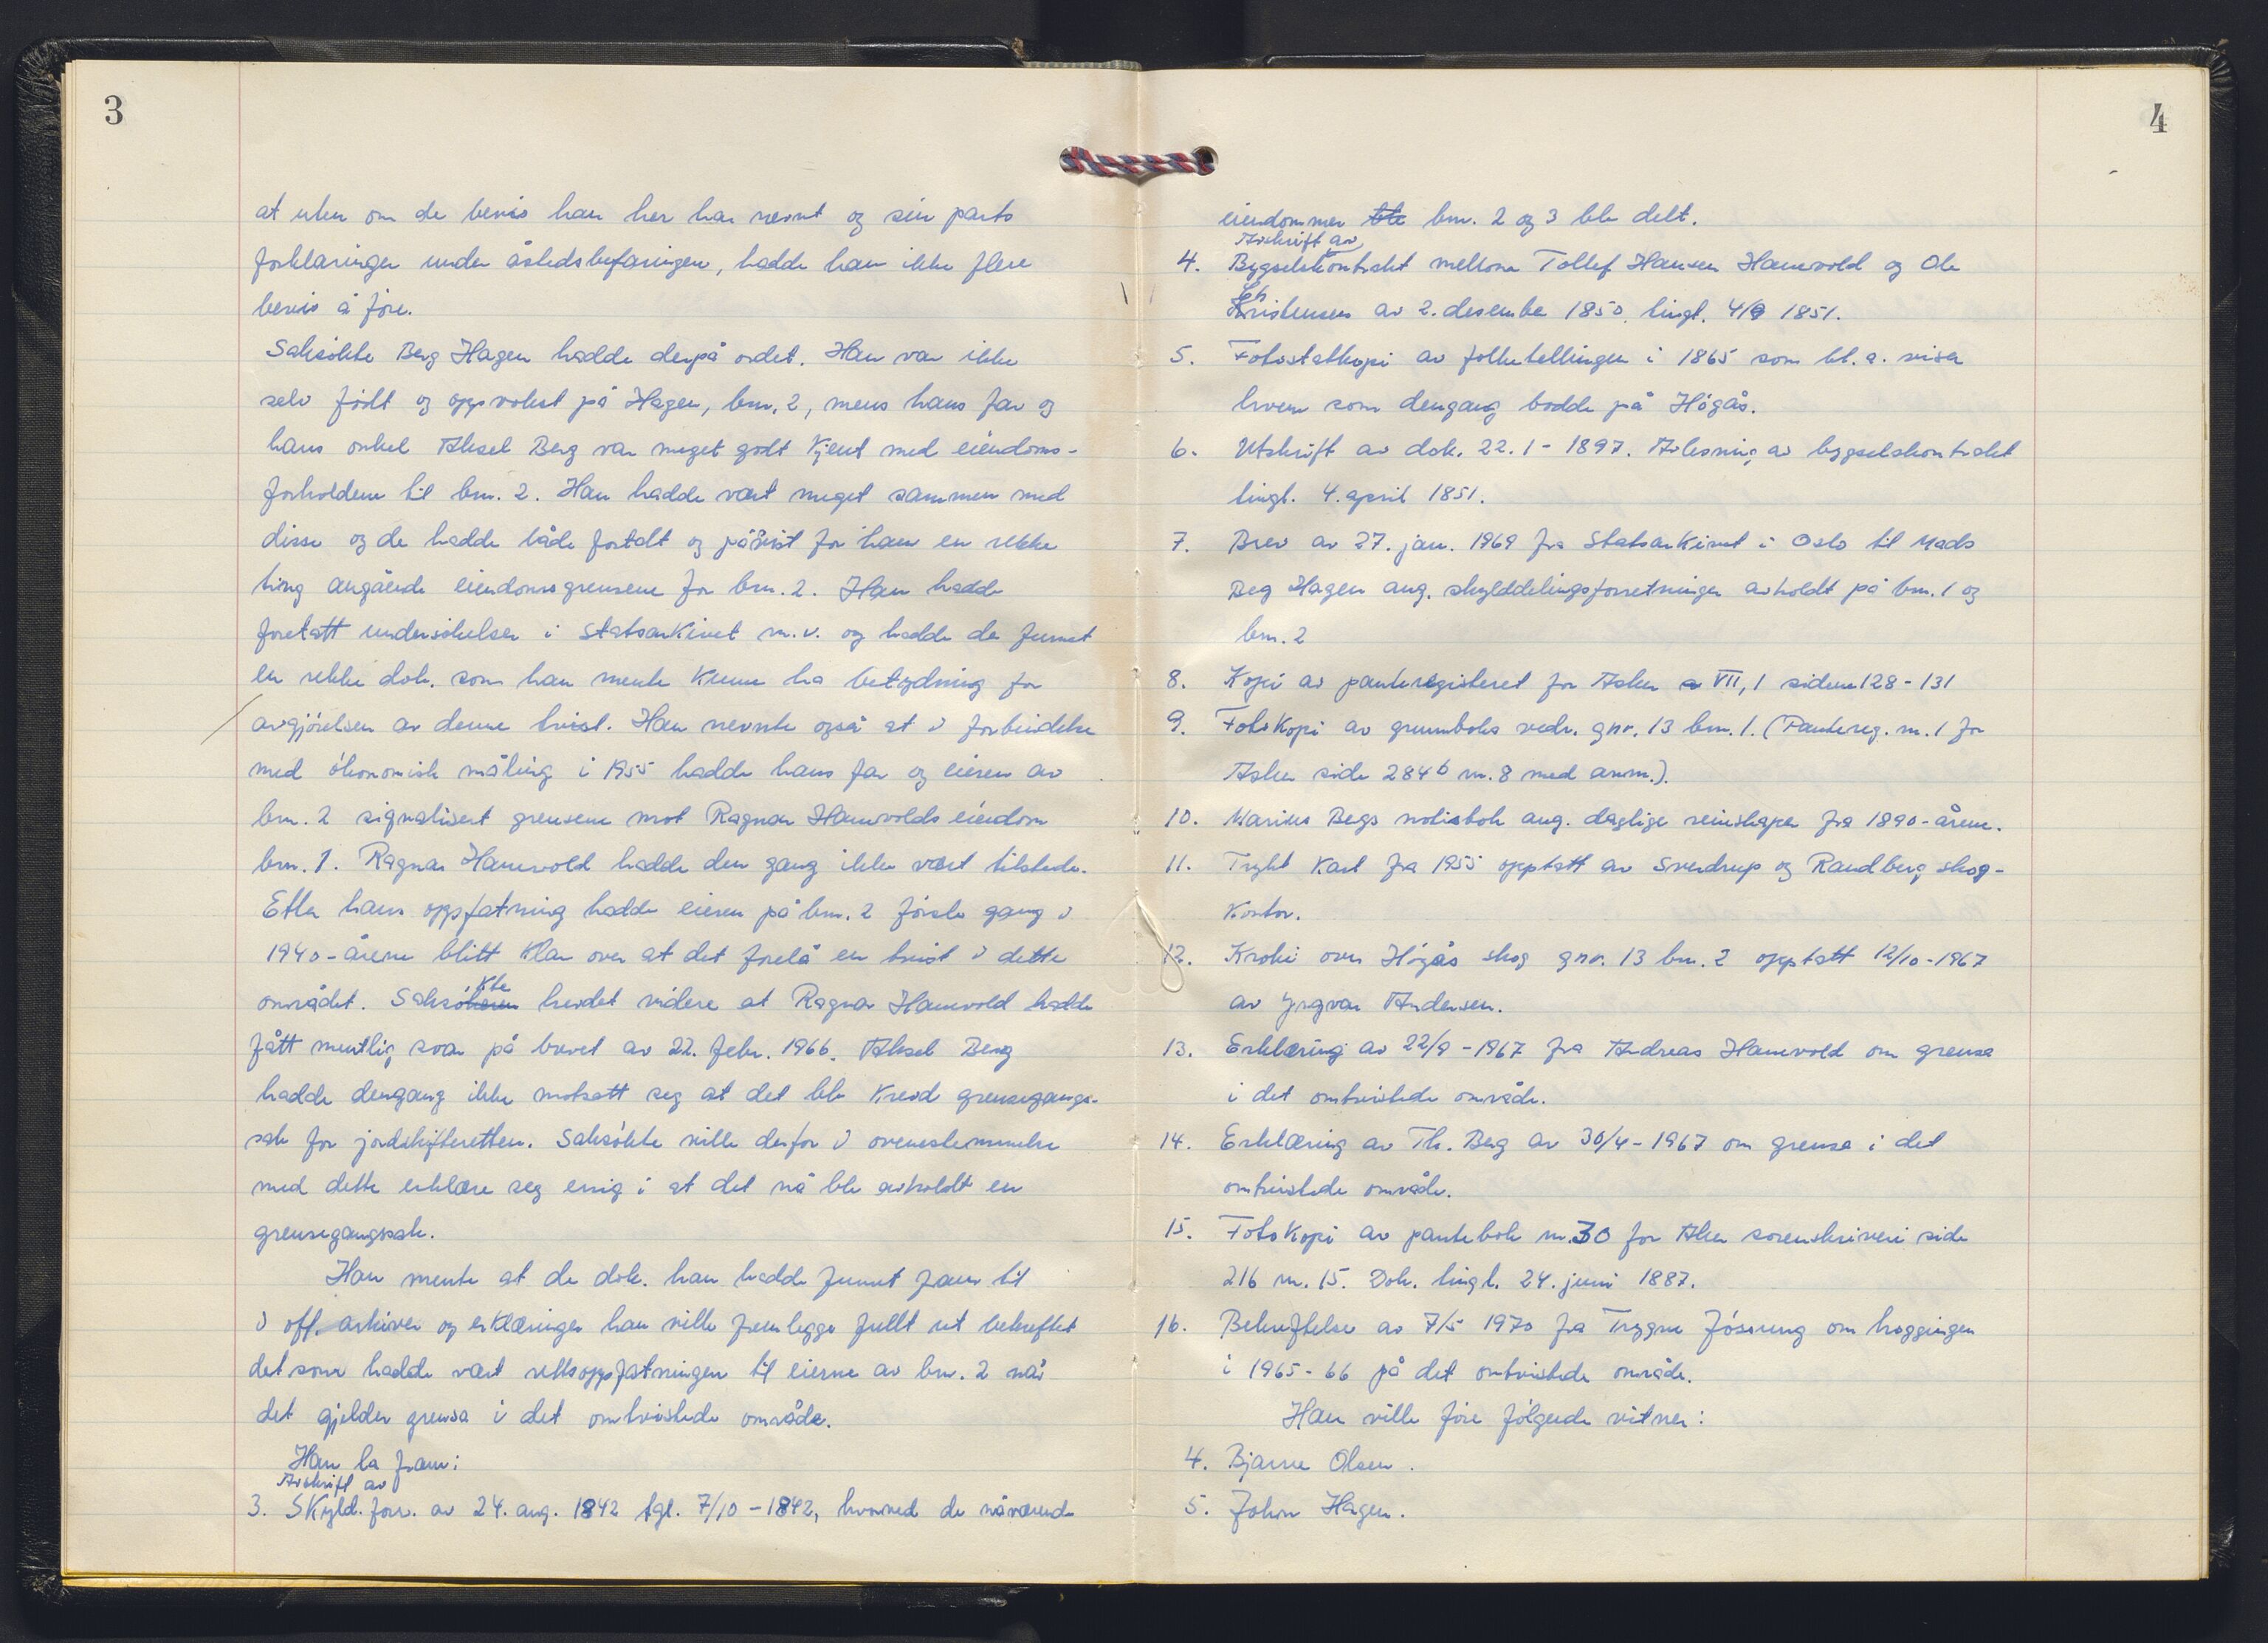 3
at uten om de bevis han her har nevnt og sin parts
forklaringer under åstedsbefaringen, hadde han ikke flere
bevis å føre.
Saksøkte Berg Hagen hadde derpå ordet. Han var ikke
selv født og oppvokst på Hagen, bnr. 2, mens hans far og
hans onkel Aksel Berg var meget godt kjent med eiendoms-
forholdene til bnr. 2. Han hadde vært meget sammen med
disse og de hadde både fortalt og påvist for ham en rekke
ting angående eiendomsgrensene for bnr. 2. Han hadde
foretatt undersøkelser i Statsarkivet m.v. og hadde da funnet
en rekke dok. som han mente kunne ha betydning for
avgjørelsen av denne tvist. Han nevnte også at i forbindelse
med økonomisk måling i 1955 hadde hans far og eieren av
bnr. 2 signalisert grensene mot Ragnar Hauevolds eiendom
bnr. 1. Ragnar Hauevold hadde den gang ikke vært tilstede.
Etter hans oppfatning hadde eieren på bnr. 2 første gang i
1940-årene blitt klar over at det forelå en tvist i dette
området. Saksøkte hevdet videre at Ragnar Hauevold hadde
fått muntlig svar på brevet av 22. febr. 1966. Aksel Berg
hadde dengang ikke motsatt seg at det ble krevd grensegangs-
sak for jordskifteretten. Saksøkte ville derfor i overenstemmelse
med dette erklære seg enig i at det nå ble avholdt en
grensegangssak.
Han mente at de dok. han hadde funnet fram til
i off. arkiver og erklæringer han ville fremlegge fullt ut bekreftet
det som hadde vært rettsoppfatningen til eierne av bnr. 2 når
det gjelder grensa i det omtvistede område.
Han la fram:
Avskrift av
3. Skyld. forr. av 24. aug. 1842 tgl. 7/10 - 1842, hvorved de nåværende
4
eiendommer bnr. 2 og 3 ble delt.
Avskrift av
4. Bygselskontrakt mellom Tollef Hansen Hauevold og Ole
Christensen av 2. desember 1850, tingl. 4/4 1851.
5. Fotostatkopi av folketellingen i 1865 som bl.a. viser
hvem som dengang bodde på Høgås.
6. Utskrift av dok. 22.1 - 1897. Avlesning av bygselskontrakt
tingl. 4. april 1851.
7. Brev av 27. jan. 1969 fra Statsarkivet i Oslo til Mads
Berg Hagen ang. skylddelingsforretninger avholdt på bnr. 1 og
bnr. 2
8. Kopi av panteregisteret for Asker VII, 1 sidene 128 - 131
9. Fotokopi av grunnboka vedr. gnr. 13 bnr. 1. (Pantereg. nr. 1 for
Asker side 284 b nr. 8 med anm.).
10. Marius Bergs notisbok ang. daglige reinskaper fra 1890-årene.
11. Trykt kart fra 1955 opptatt av Sverdrup og Randberg skog-
kontor.
12. Kroki over Høgås skog gnr. 13 bnr. 2 opptatt 12/10 - 1967
av Yngvar Andersen.
13. Erklæring av 22/9 - 1967 fra Andreas Hauevold om grensa
i det omtvistede område.
14. Erklæring av Th. Berg av 30/4 - 1967 om grensa i det
omtvistede område.
15. Fotokopi av pantebok nr. 30 for Aker sorenskriveri side
216 nr. 15. Dok. tingl. 24. juni 1887.
16. Bekreftelse av 7/5 1970 fra Trygve Jøssung om hoggingen
i 1965 - 66 på det omtvistede område.
Han ville føre følgende vitner:
4. Bjarne Olsen.
5. John Hagen.